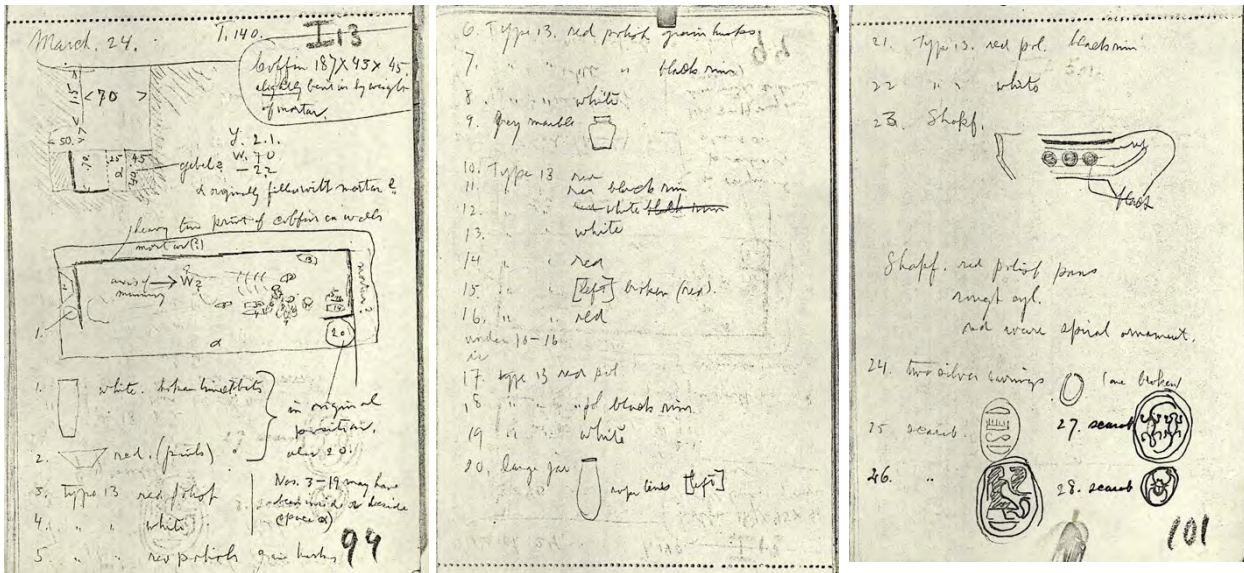 March. 24.
T. 140.
I 13
Coffin 187 X 45 X 45.
slightly bent in by weight
of mortar.
1.5
< 70 >
50.
70.
25
45
α
40
gebel?
Y. 2.1.
W. 70
- 22
α originally filled with mortar?
heavy line print of coffin on walls
mortar (?)
axis of
mummy
W?
(13)
mortar?
1.
20
α
1.
white. broken
2.
red. (points)
in original
position.
also 20.
3. Type 13 red polish
4. " " white
5. " " red polish grain husks
Nos. 3-19 may have
been inside or beside
(space α)
94
6. Type 13. red polish grain husks
7. " " " " black rim
8. " " " white
9. Grey marble
10. Type 13 red
11. " " red black rim
12. " " white black rim
13. " " white
14 " " red
15. " " [left] broken (red).
16. " " red
under 10-16
in
17. type 13 red pol
18 " " " pol black rim
19 " " white
20. large jar
rope lines [left]
21. Type 13. red pol. black rim
22 " " white
23. Shopf.
flat
Shopf. red polish pans
rough cyl.
red ware spiral ornament.
24. two silver earrings
(one broken)
25 scarab.
27. scarab
26. "
28. scarab
101